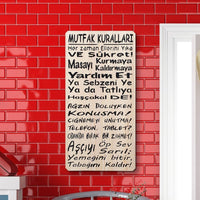 MUTFAK KURALLARI
Her zaman Ellerini Yıka
VE Şükret!
Masayı Kurmaya
Kaldırmaya
Yardım Et
Ya Sebzeni Ye
Ya da Tatlıya
Hoşçakal DE!
AĞZIN DOLUYKEN
KONUŞMA!
ÇİĞNEMEYİ UNUTMA!
TELEFON, TABLET?
ONUNDA BİR ZAMANI!
Aşçıyı Öp Sev
Sarıl,
Yemeğini bitir,
Tabağını Kaldır!